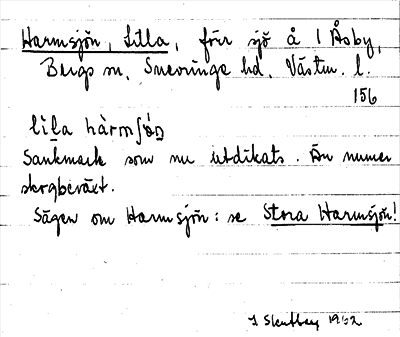 Harmsjön, Lilla, förr sjö å 1 Åsby,
Bergs sn, Snevringe hd, Västm. l.
156
lìl̥a hàrmʃö́n
Sankmark som nu utdikats. Än numer
skogbeväxt.
Sägen om Harmsjön: se Stora Harmsjön!
1962